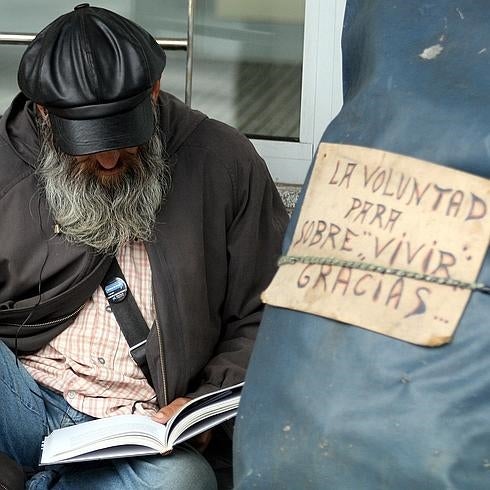 LA VOLUNTAD
PARA
SOBRE "VIVIR".
GRACIAS...